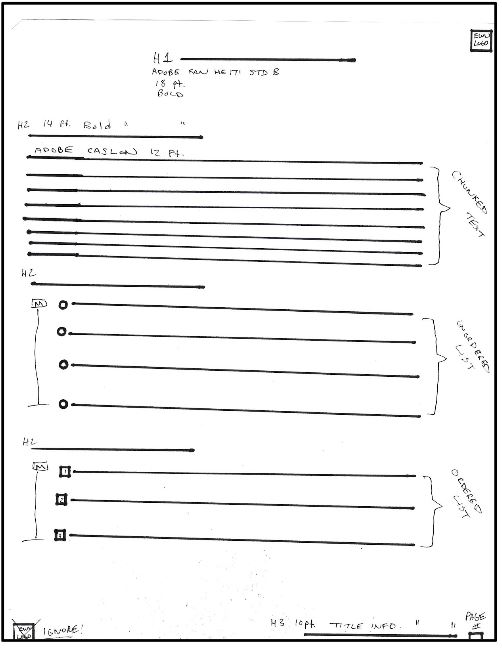 EWU
LOGO
H1
ADOBE FAN HEITI STD B
18 Pt.
BOLD
H2 14 Pt. Bold " "
ADOBE CASLON 12 Pt.
CHUNKED
TEXT
H2
M
UNORDERED
LIST
H2
M
1
2
3
ORDERED
LIST
EWU
LOGO
IGNORE!
H3 10pt. TITLE INFO. " "
PAGE
#